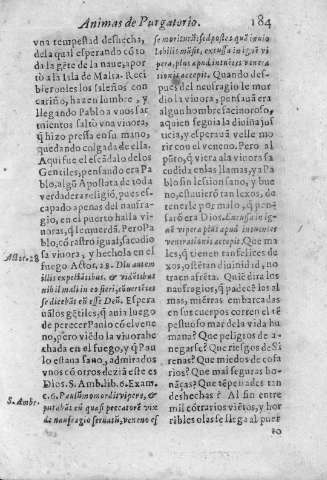 Animas de Purgatorio. 184
vna tempestad deshecha,
de la qual esperando có to
da la gēte de la naue, apor
tò a la Isla de Malta. Reci
bieronles los Isleños con
cariño, hazen lumbre, y
llegando Pablo a vnos sar
mientos saltò vna viuora,
q̃ hizo pressa en su mano,
quedando colgada de ella.
Aqui fue el escādalo de los
Gentiles, pensando era Pa
blo algũ Apostata de toda
verdadera religiõ, pues es
capado apenas del naufra-
gio, en el puerto halla vi-
uoras, q̃ le muerdā. Pero Pa
blo, cõ rastro igual, sacudio
la viuora, y hechola en el
Actor. 28
fuego Actor. 28. Diu autem
illis expectātibus, & vidētibus
nihil mali in eo fieri, cōuertētes
se dicebāt eū esse Deũ. Espera
uā los gētiles, q̃ auia luego
de perecer Paulo cõ el vene-
no, pero viēdo la viuora he
chada en el fuego, y q̃ Pau
lo estaua sano, admirados
vnos có otros dezia este es
Dios. S. Amb. lib. 6. Exam.
S. Ambr.
c. 6. Paulũ momordit vipera, &
putabāt eũ quasi peccatorē vix
de naufragio seruatũ, veneno es
se moriturũ: sed postea quā in uio
labilis māsit, excussa in ignē vi
pera, plus apud intuētes venera
tionis accepit. Quando des-
pues del naufragio le mur
diò la viuora, pensauā era
algun hombre facinoroso,
a quien seguia la diuina jus
ticia, y esperauā velle mo-
rir con el veneno. Pero al
pūto, q̃ viera a la viuora sa
codida en las llamas, ya Pa
blo sin lession sano, y bue
no, estuuierõ tan lexos, de
tenerle por malo, q̃ pen-
sarõ era Dios. Excussa in ig-
nē vipera plus apud intuentes
venerationis accepit. Que ma-
les, q̃ tienen tan felices de
xos, ostētan diuinidad, no
traen afrēta. Quiē dira los
naufragios, q̃ padecē las al
mas, miētras embarcadas
en sus cuerpos corren el tē
pestuoso mar de la vida hu
mana? Que peligros de a-
negarse? Que riesgos de Si
renas? Que miedos de cosa
rios? Que mal seguras bo-
nāças? Que tēpestades tan
deshechas? Al fin entre
mil cōtrarios viētos, y hor
ribles olas se llega al puer
to